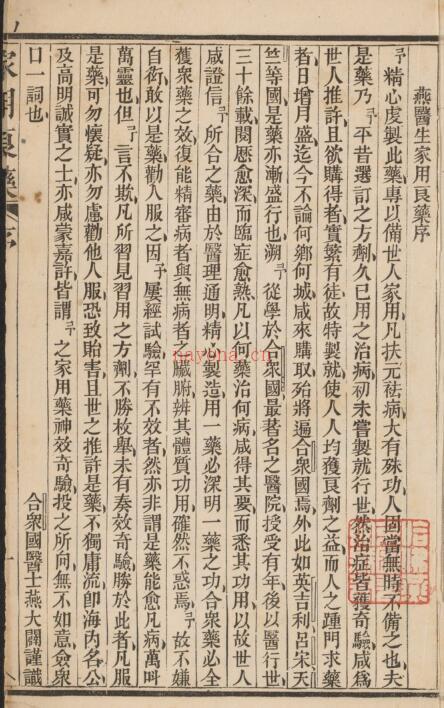 燕醫生家用良藥序
予精心虔製此藥專以備世人家用凡扶元祛病大有殊功人固當無時不備之也夫
是藥乃予平昔選訂之方劑久已用之治病初未嘗製就行世然治症皆獲奇驗咸爲
世人推許且欲購得者實繁有徒故特製就使人人均獲良劑之益而人之踵門求藥
者日增月盛迄今不論何鄉何城咸來購取殆將遍合衆國焉外此如英吉利呂宋天
竺等國是藥亦漸盛行也溯予從學於合衆國最著名之醫院授受有年後以醫行世
三十餘載閱歷愈深而臨症愈熟凡以何藥治何病咸得其要而悉其功用以故世人
咸證信予所合之藥由於醫理通明精心製造用一藥必深明一藥之功合衆藥必全
獲衆藥之效復能精審病者與無病者之臟腑辨其體質功用確然不惑焉予故不嫌
自衒敢以是藥勸人服之因予屢經試驗罕有不效者然亦非謂是藥能愈凡病萬呌
萬靈也但予言不欺凡所習見習用之方劑不勝枚舉未有奏效奇驗勝於此者凡服
是藥可勿懷疑亦勿慮勸他人服恐致貽害且世之推許是藥不獨庸流卽海內名公
及高明誠實之士亦咸蒙嘉許皆謂予之家用藥神效奇驗投之所向無不如意僉衆
口一詞也
合衆國醫士燕大闢謹識
家用良藥
序
一
nayona.cn